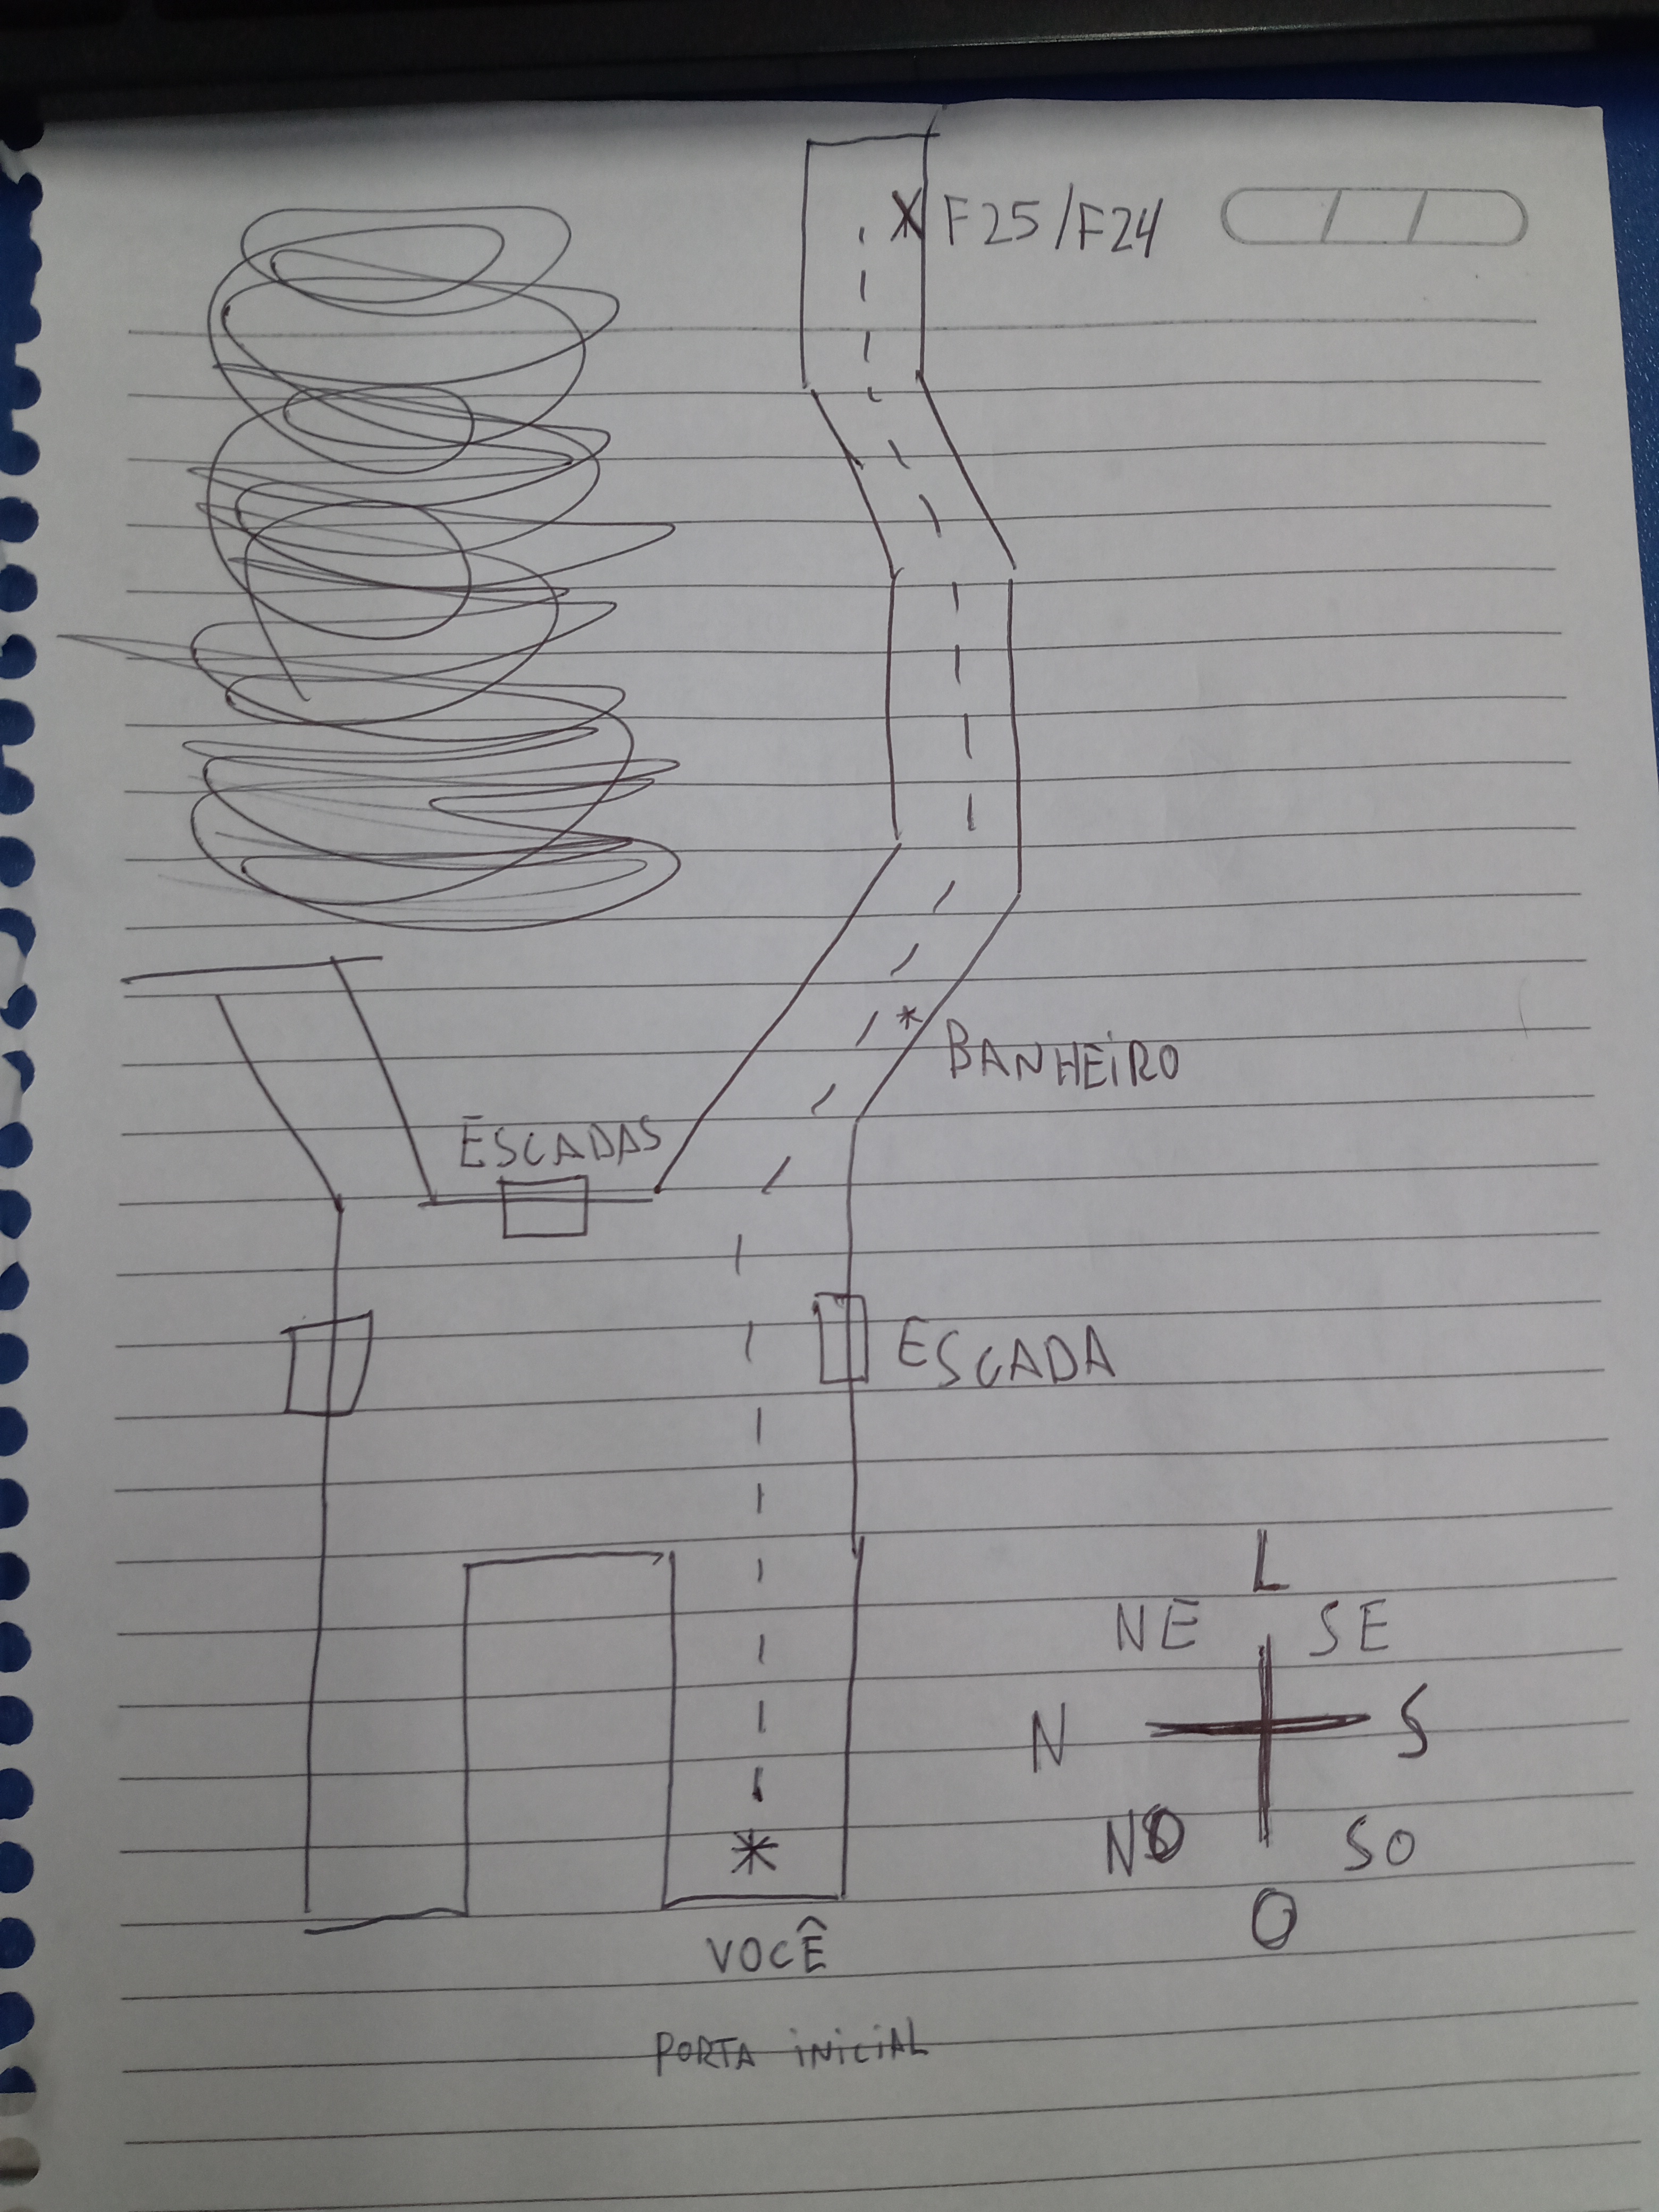 X F25/F24
* BANHEIRO
ESCADAS
ESCADA
L
NE SE
N S
NO SO
O
*
VOCÊ
PORTA INICIAL